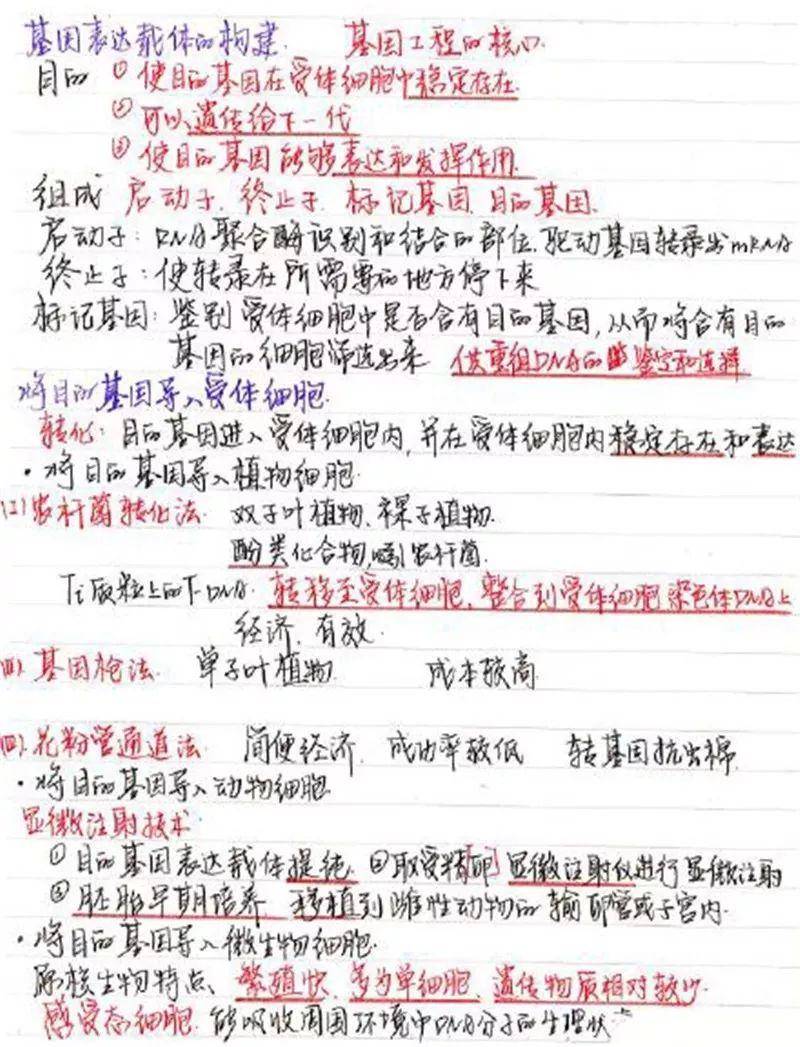 基因表达载体的构建 基因工程的核心
目的 ①使目的基因在受体细胞中稳定存在
②可以遗传给下一代
③使目的基因能够表达和发挥作用
组成 启动子、终止子、标记基因、目的基因
启动子：DNA聚合酶识别和结合的部位、驱动基因转录出mRNA
终止子：使转录在所需要的地方停下来
标记基因：鉴别受体细胞中是否含有目的基因，从而将含有目的
基因的细胞筛选出来 供重组DNA的鉴定和选择
将目的基因导入受体细胞
转化：目的基因进入受体细胞内，并在受体细胞内稳定存在和表达
·将目的基因导入植物细胞
农杆菌转化法 双子叶植物、裸子植物
酚类化合物，吸引农杆菌
Ti质粒上的T-DNA 转移至受体细胞，整合到受体细胞染色体DNA上
经济、有效
基因枪法 单子叶植物 成本较高
花粉管通道法 简便经济 成功率较低 转基因抗虫棉
·将目的基因导入动物细胞
显微注射技术
①目的基因表达载体提纯 ②取受精卵 显微注射仪进行显微注射
③胚胎早期培养 移植到雌性动物的输卵管或子宫内
·将目的基因导入微生物细胞
原核生物特点、繁殖快、多为单细胞、遗传物质相对较少
感受态细胞 能吸收周围环境中DNA分子的生理状